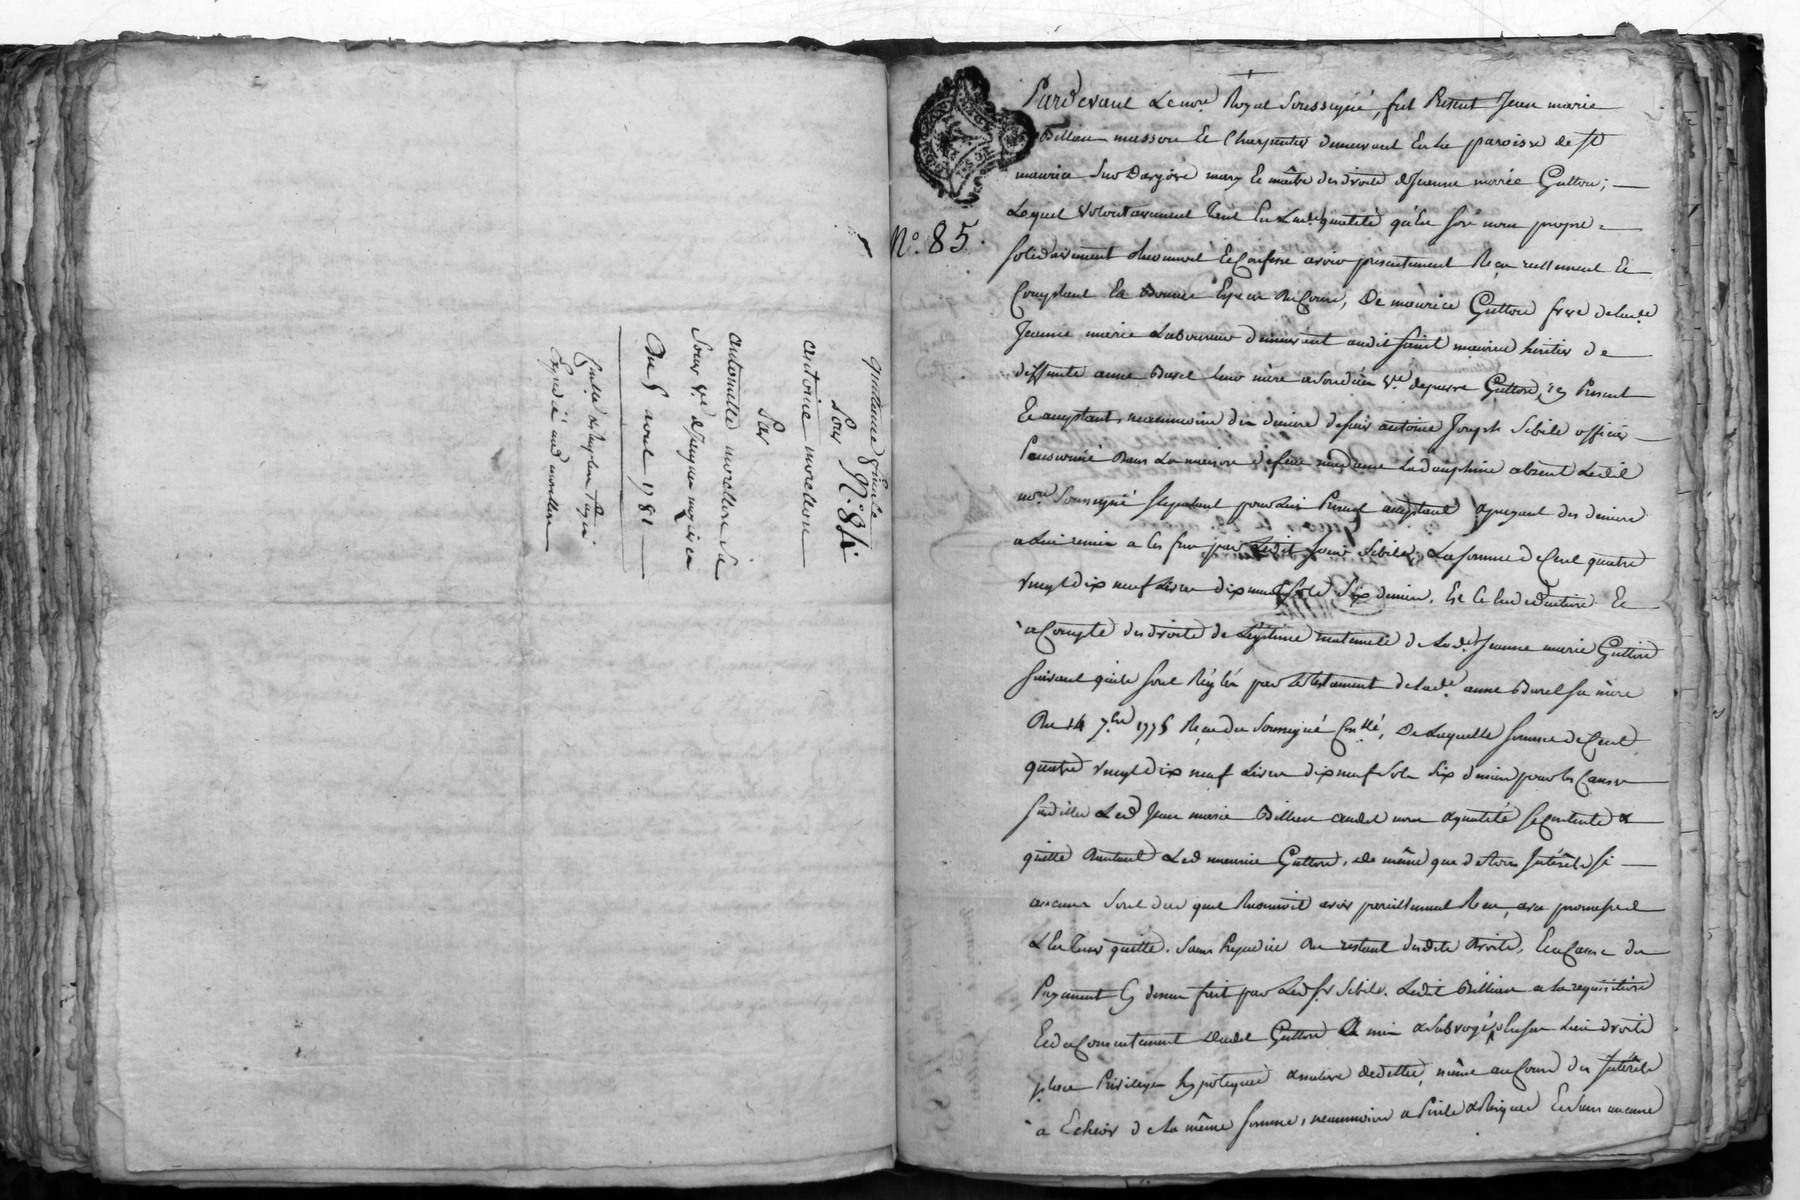 quittance finale
Pour N.° 84
antoine morellon
Par
antoinette morellon sa
Sœur V.e
Du 5 avril 1781
Expédié aud morellon
N.° 85.
Pardevant Le no.re Royal Soussigné, fut Present Jean marie
Billien masson Et Charpentier demeurant En La paroisse de S.t
maurice Sur Dargoire mary Et maître des droits de Jeanne mariée Gutton;
Lequel volontairement Tant En Lad.e qualité qu'En son nom propre
solidairement Reconnoit Et Confesse avoir presentement Reçu réellement Et
Comptant En Bonnes Espèces au Cours, De maurice Gutton frere de lad.e
Jeanne marie Laboureur demeurant audit Saint maurice heritier de
deffunte anne Burel leur mère a son décès V.e de pierre Gutton, icy Present
Et acceptant, neanmoins des deniers de sieur antoine Joseph Sibile officier
Pensionné Dans La maison de feüe madame La dauphine absent Ledit
no.re Soussigné stipulant pour Lui Present acceptant Et payant des deniers
a Lui remis a Ces fins par Ledit sieur Sibile, La somme de Cent quatre
vingt dix neuf Livres dix neuf sols Six deniers, Et Ce En déduction Et
a Compte des droits de Légitime maternelle de Lad.e Jeanne marie Gutton
suivant qu'ils sont Réglés par le testament de Lad.e anne Burel sa mère
Du 14 7.bre 1775 Reçu du Soussigné Con.llé, De Laquelle somme de Cent
quatre vingt dix neuf Livres dix neuf sols Six deniers pour les Causes
susdittes Led Jean marie Billien audit nom & qualité se Contente &
quitte Autant Led maurice Gutton, De même que de tous Intérêts si
aucuns sont dus que Reconnoit avoir pareillement Reçu, avec promesse de
L'En Tenir quitte, Sans Préjudice Du restant desdits Droits, Et a Cause du
Payement Cy dessus fait par Led s.r Sibile, Ledit Billien a la requisition
Et du Consentement dudit Gutton La mis & Subrogé En ses Lieu droits
place Privileges hypoteques & nature de dettes, même au Cours des Intérêts
a Echeoir de La même somme, neanmoins a Périls & Risques Et Sans aucune